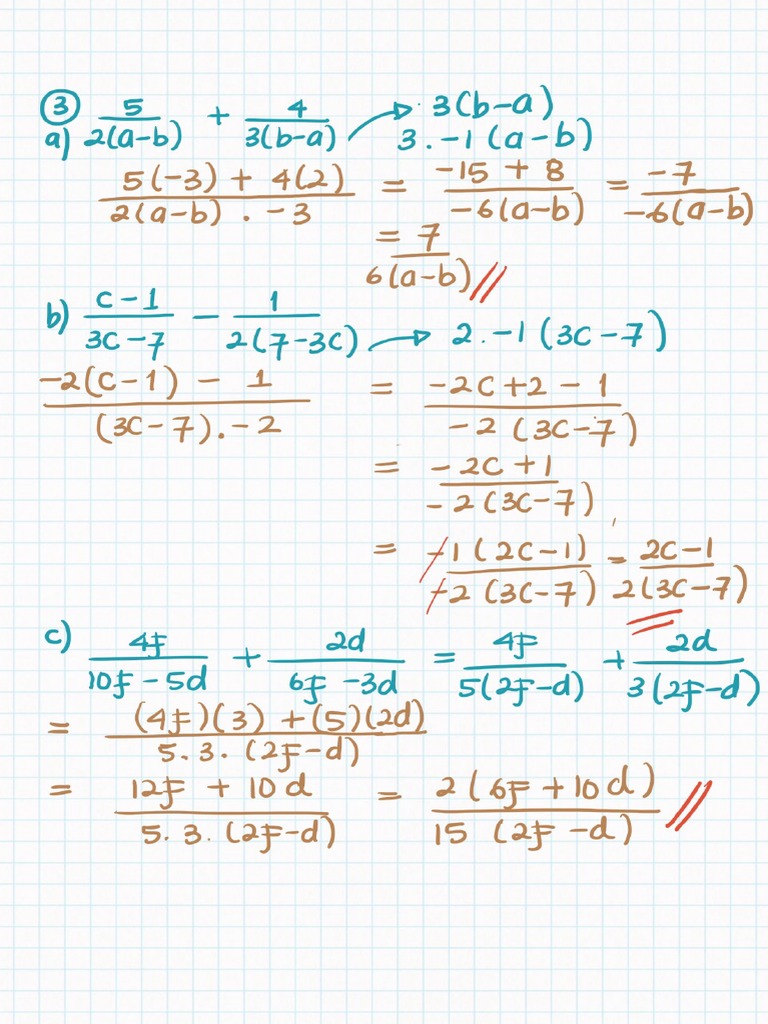 ③ 5/2(a-b) + 4/3(b-a) → 3(b-a)
a) 3.-1(a-b)
5(-3) + 4(2)/2(a-b) . -3 = -15 + 8/-6(a-b) = -7/-6(a-b)
= 7/6(a-b)//
b) c-1/3c-7 - 1/2(7-3c) → 2.-1(3c-7)
-2(c-1) - 1/(3c-7).-2 = -2c+2-1/-2(3c-7)
= -2c+1/-2(3c-7)
= -1(2c-1)/-2(3c-7) = 2c-1/2(3c-7)
c) 4f/10f-5d + 2d/6f-3d = 4f/5(2f-d) + 2d/3(2f-d)
= (4f)(3) + (5)(2d)/5.3.(2f-d)
= 12f + 10d/5.3.(2f-d) = 2(6f+10d)/15(2f-d)//